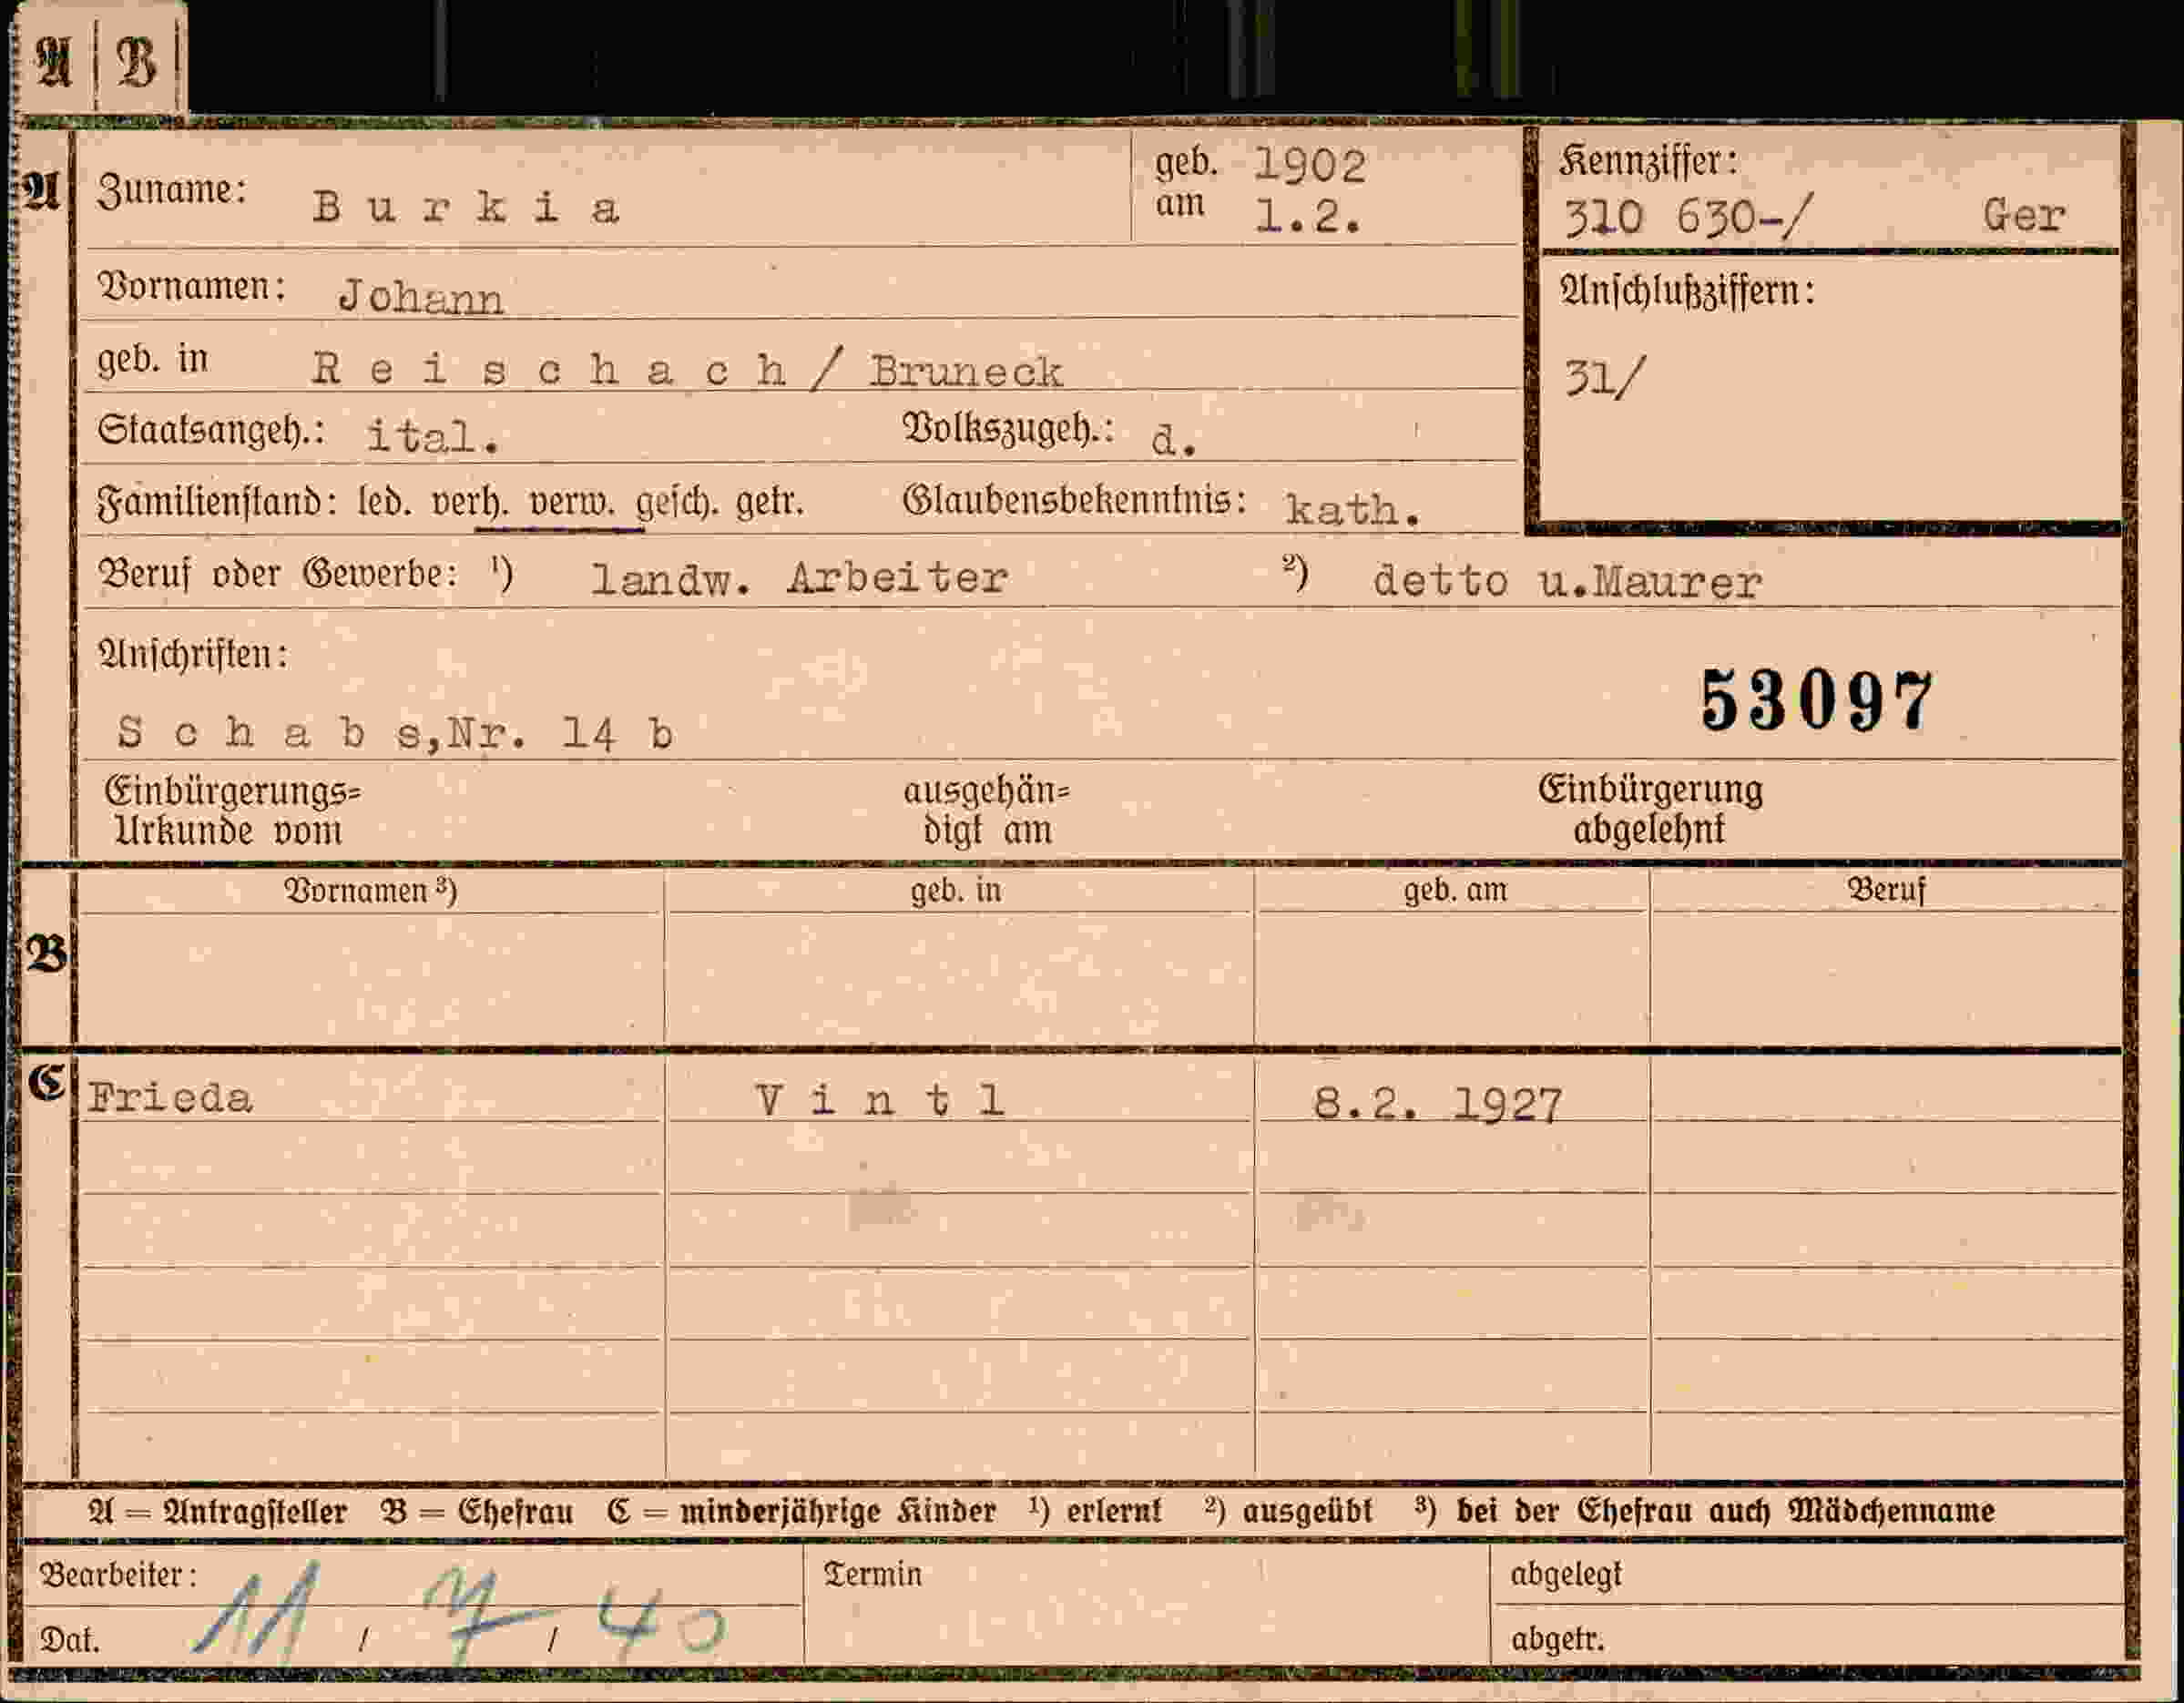 A | B
A
Zuname: Burkia
geb. am 1902 1.2.
Kennziffer:
310 630-/ Ger
Vornamen: Johann
Anschlußziffern:
31/
geb. in Reischach / Bruneck
Staatsangeh.: ital. Volkszugeh.: d.
Familienstand: led. verh. verw. gesch. getr. Glaubensbekenntnis: kath.
Beruf oder Gewerbe: ¹) landw. Arbeiter ²) detto u.Maurer
Anschriften:
53097
Schabs,Nr. 14 b
Einbürgerungs= ausgehän= Einbürgerung
Urkunde vom digt am abgelehnt
Vornamen ³) geb. in geb. am Beruf
B
C Frieda Vintl 8.2. 1927
A = Antragsteller B = Ehefrau C = minderjährige Kinder ¹) erlernt ²) ausgeübt ³) bei der Ehefrau auch Mädchenname
Bearbeiter: Termin abgelegt
Dat. 11 / 7 / 40 abgetr.